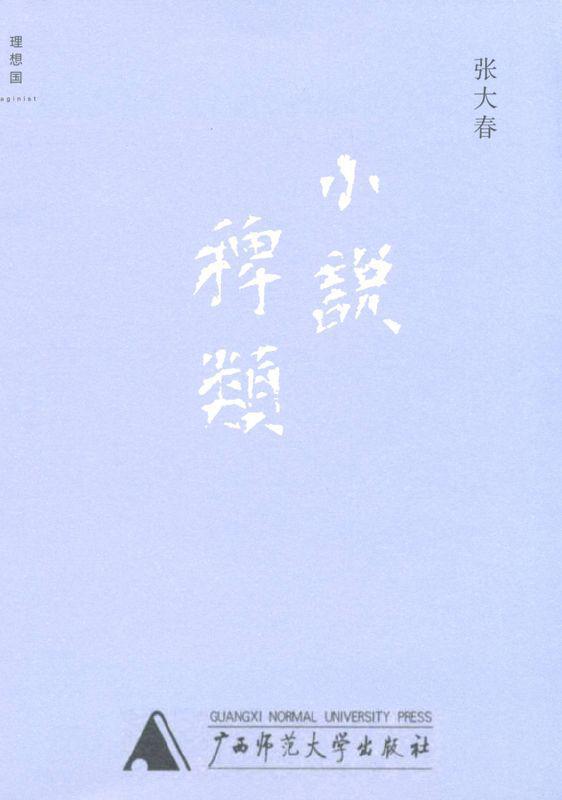 理想国
aginist
张大春
小說
稗類
GUANGXI NORMAL UNIVERSITY PRESS
广西师范大学出版社